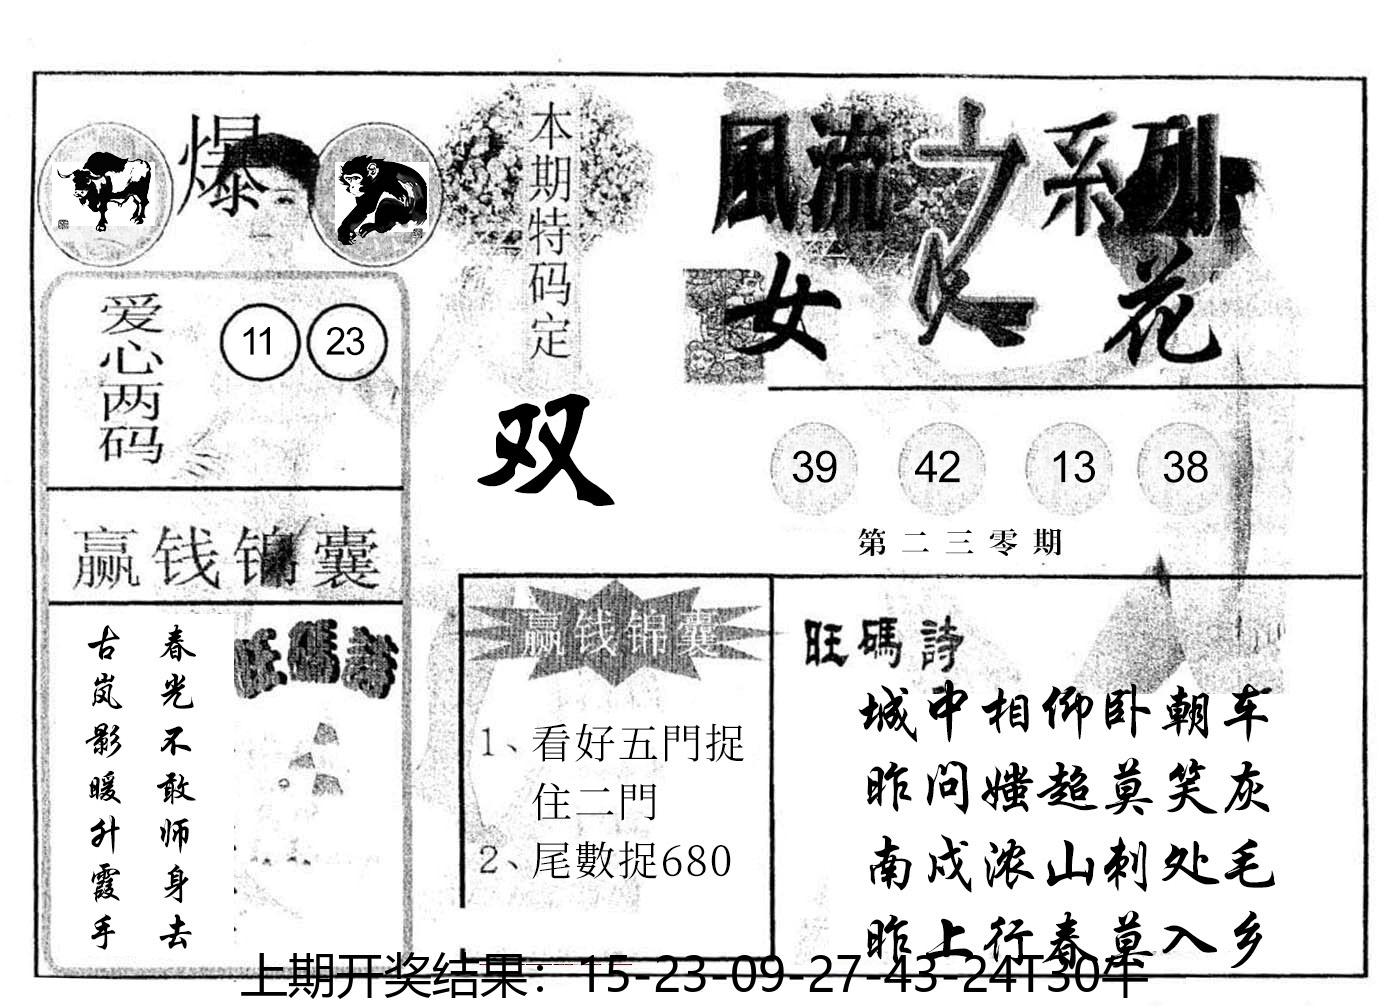 爆
本期特码定
双
風流之系列
女人花
爱心两码
11 23
39 42 13 38
第二三零期
赢钱锦囊
春光不敢师身去
古岚影暖升霞手
旺碼詩
赢钱锦囊
1、看好五門捉
住二門
2、尾數捉680
旺碼詩
城中相仰卧朝车
昨问嬟超莫笑灰
南戍浓山刺处毛
昨上行春莫入乡
上期开奖结果：15-23-09-27-43-24T30牛